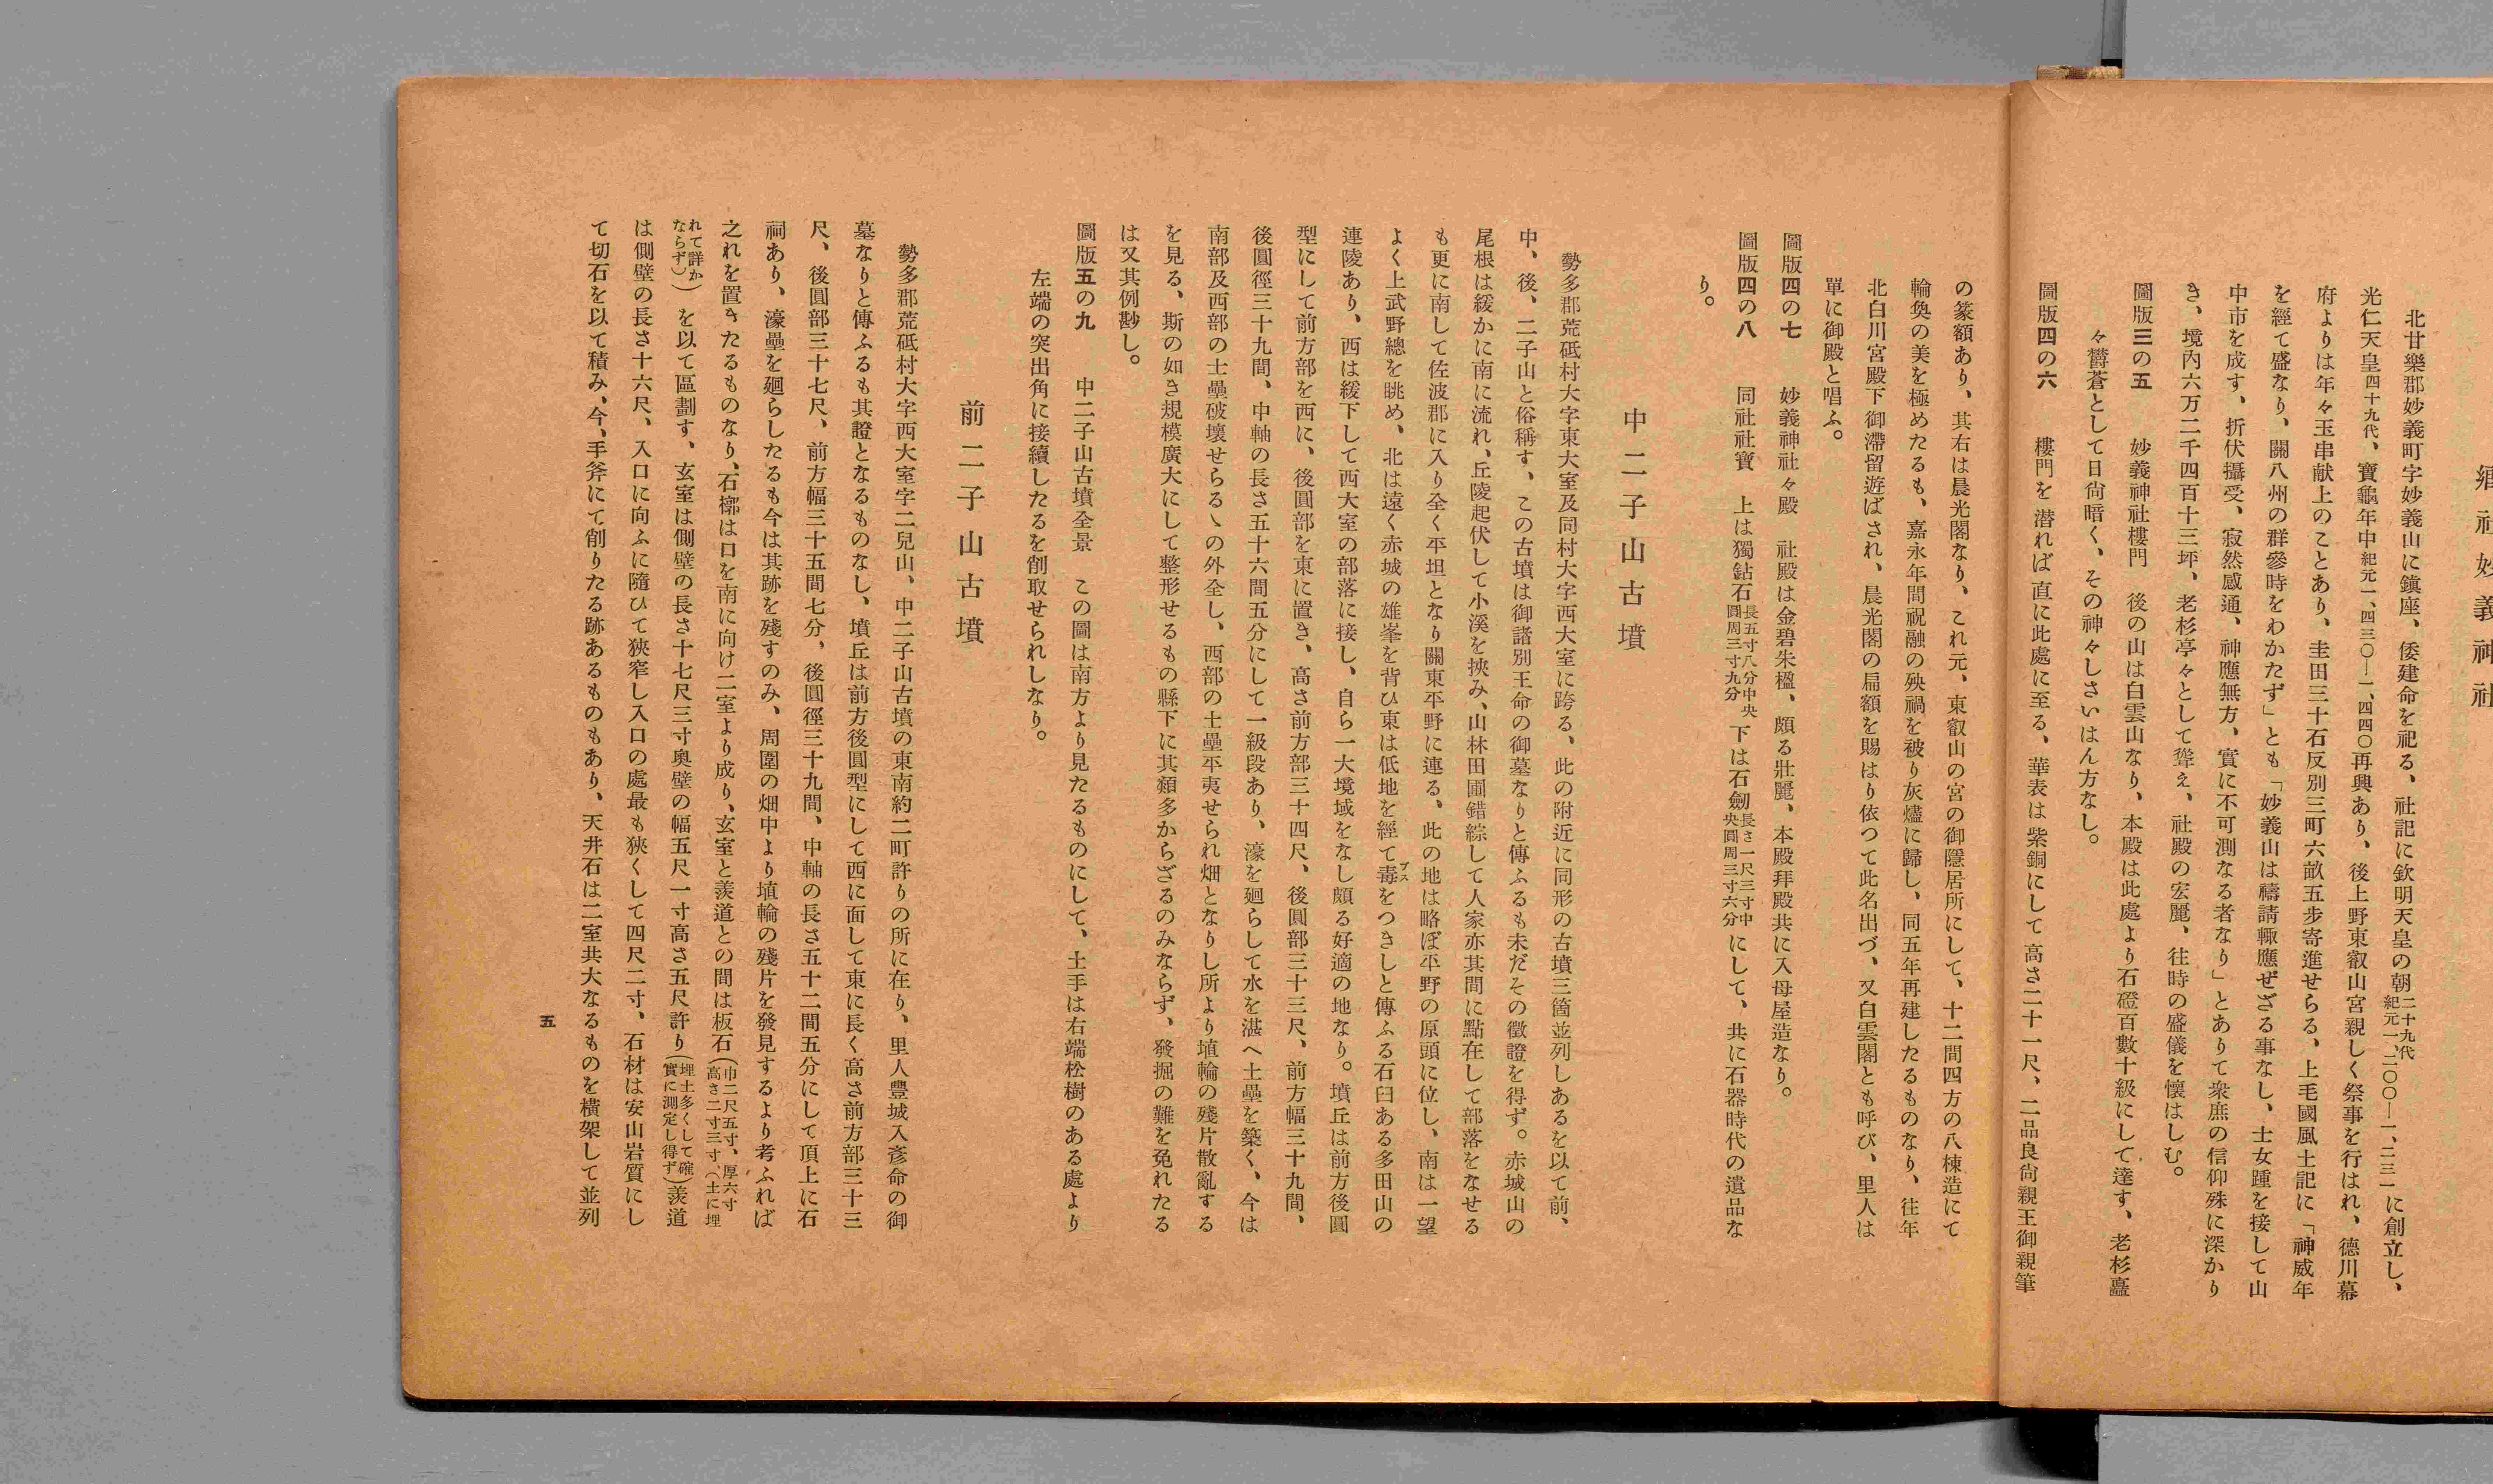 縣社妙義神社
北甘樂郡妙義町字妙義山に鎭座、倭建命を祀る、社記に欽明天皇の朝二十九代紀元一、二〇〇―一、二三一に創立し、
光仁天皇四十九代、寶龜年中紀元一、四三〇―一、四四〇再興あり、後上野東叡山宮親しく祭事を行はれ、德川幕
府よりは年々玉串献上のことあり、圭田三十石反別三町六畝五步寄進せらる、上毛國風土記に「神威年
を經て盛なり、關八州の群參時をわかたず」とも「妙義山は禱請輙應ぜざる事なし、士女踵を接して山
中市を成す、折伏攝受、寂然感通、神應無方、實に不可測なる者なり」とありて衆庶の信仰殊に深かり
き、境內六万二千四百十三坪、老杉亭々として聳え、社殿の宏麗、往時の盛儀を懷はしむ。
圖版三の五　妙義神社樓門　後の山は白雲山なり、本殿は此處より石磴百數十級にして達す、老杉矗
々欝蒼として日尙暗く、その神々しさいはん方なし。
圖版四の六　樓門を潜れば直に此處に至る、華表は紫銅にして高さ二十一尺、二品良尙親王御親筆
の篆額あり、其右は晨光閣なり、これ元、東叡山の宮の御隱居所にして、十二間四方の八棟造にて
輪奐の美を極めたるも、嘉永年間祝融の殃禍を被り灰燼に歸し、同五年再建したるものなり、往年
北白川宮殿下御滯留遊ばされ、晨光閣の扁額を賜はり依つて此名出づ、又白雲閣とも呼び、里人は
單に御殿と唱ふ。
圖版四の七　妙義神社々殿　社殿は金碧朱楹、頗る壯麗、本殿拜殿共に入母屋造なり。
圖版四の八　同社社寶　上は獨鈷石長五寸八分中央圓周三寸九分　下は石劒長さ一尺三寸中央圓周三寸六分　にして、共に石器時代の遺品な
り。
中二子山古墳
勢多郡荒砥村大字東大室及同村大字西大室に跨る、此の附近に同形の古墳三箇並列しあるを以て前、
中、後、二子山と俗稱す、この古墳は御諸別王命の御墓なりと傳ふるも未だその徵證を得ず。赤城山の
尾根は緩かに南に流れ、丘陵起伏して小溪を挾み、山林田圃錯綜して人家亦其間に點在して部落をなせる
も更に南して佐波郡に入り全く平坦となり關東平野に連る、此の地は略ぼ平野の原頭に位し、南は一望
よく上武野總を眺め、北は遠く赤城の雄峯を背ひ東は低地を經て毒ブスをつきしと傳ふる石臼ある多田山の
連陵あり、西は緩下して西大室の部落に接し、自ら一大境域をなし頗る好適の地なり。墳丘は前方後圓
型にして前方部を西に、後圓部を東に置き、高さ前方部三十四尺、後圓部三十三尺、前方幅三十九間、
後圓徑三十九間、中軸の長さ五十六間五分にして一級段あり、濠を廻らして水を湛へ土壘を築く、今は
南部及西部の土壘破壞せらるゝの外全し、西部の土壘平夷せられ畑となりし所より埴輪の殘片散亂する
を見る、斯の如き規模廣大にして整形せるもの縣下に其類多からざるのみならず、發掘の難を免れたる
は又其例尠し。
圖版五の九　中二子山古墳全景　この圖は南方より見たるものにして、土手は右端松樹のある處より
左端の突出角に接續したるを削取せられしなり。
前二子山古墳
勢多郡荒砥村大字西大室字二兒山、中二子山古墳の東南約二町許りの所に在り、里人豐城入彥命の御
墓なりと傳ふるも其證となるものなし、墳丘は前方後圓型にして西に面して東に長く高さ前方部三十三
尺、後圓部三十七尺、前方幅三十五間七分、後圓徑三十九間、中軸の長さ五十二間五分にして頂上に石
祠あり、濠壘を廻らしたるも今は其跡を殘すのみ、周圍の畑中より埴輪の殘片を發見するより考ふれば
之れを置きたるものなり、石槨は口を南に向け二室より成り、玄室と羨道との間は板石（巾二尺五寸、厚六寸高さ二寸三寸、（土に埋
れて詳かならず））を以て區劃す、玄室は側壁の長さ十七尺三寸奧壁の幅五尺一寸高さ五尺許り（埋土多くして確實に測定し得ず）羨道
は側壁の長さ十六尺、入口に向ふに隨ひて狹窄し入口の處最も狹くして四尺二寸、石材は安山岩質にし
て切石を以て積み、今、手斧にて削りたる跡あるものもあり、天井石は二室共大なるものを橫架して並列
五